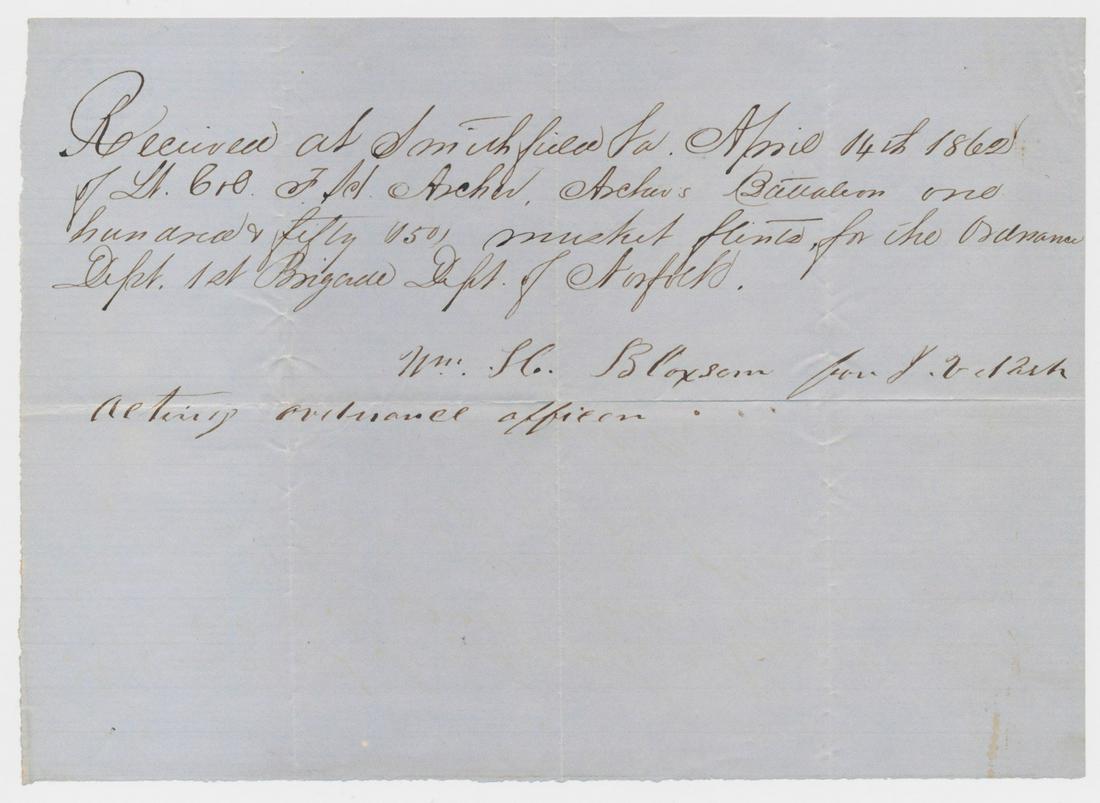 Received at Smithfield Va. April 14th 1862
of Lt. Col. F. H. Archer, Archer's Battalion one
hundred & fifty (150) musket flints, for the Ordnance
Dept. 1st Brigade Dept. of Norfolk.
Wm. H. Bloxsom for J. V
acting ordnance officer